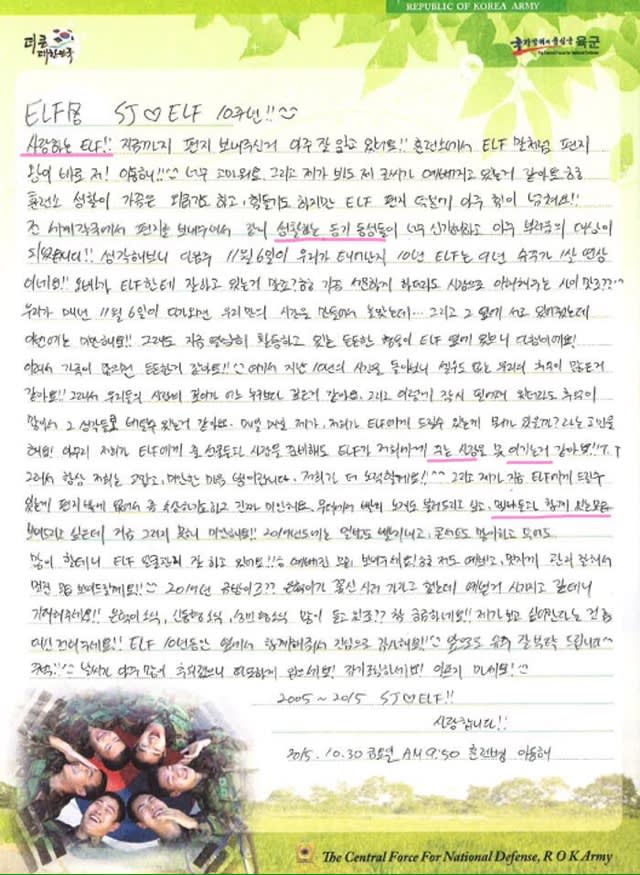 REPUBLIC OF KOREA ARMY
대한민국
육군
ELF SJ♡ELF 10주년!!
사랑하는 ELF!! 지금까지 편지 보내주신거 아주 잘 읽고 있어요!! 훈련소에서 ELF 편지
왕이 바로 저! 이동해!! 너무 고마워요. 그리고 제가 봐도 제 글씨가 예뻐지고 있는거 같아요
훈련소 생활이 가끔은 하고, 힘들기도 하지만 ELF 편지 덕분에 아주 힘이
전 세계각국에서 편지를 보내주셔서 함께 생활하는 동기 동생들이 너무 신기해하고 아주 부러움의 대상이
되었답니다!! 생각해보니 이번주 11월 6일이 우리가 태어난지 10년 ELF는
오빠가 ELF한테 잘하고 있는거 맞죠? 가끔 하더라도 이해해주는 사이 맞죠??
우리가 매년 11월 6일이 다가오면 우리만의 시간을 만들어서 놀았는데... 그리고 그 옆에 서로 있어줬는데
이번에는 미안해요!! 그래도 지금 열심히 활동하고 있는 든든한 형들이 ELF 옆에 있으니 다행이에요!
여기서 지난 10년의 시간을 돌아보니 셀수도 없는 우리의 추억이 많은거
같아요!! 그래서 우리들의 사랑이 깊이가 더 누구보다 깊은거 같아요. 그리고 이렇게 잠시 떨어져 있더라도 추억이
많아서 그 생각들로 버틸수 있는거 같아요. 매일 매일 제가, 저희가 ELF에게 드릴수 있는게 뭐가 있을까? 라는 고민을
해요! 아무리 저희가 ELF에게 줄 선물들과 사랑을 준비해도 ELF가 저희에게 주는 사랑을 못 이기는거 같아요!! T.T
그래서 항상 저희는 고맙고, 미안한 마음 뿐이랍니다. 저희가 더 노력할게요!! ^^ 그리고 제가 지금 ELF에게 드릴수
있는게 편지 밖에 없어서 좀 하고 진짜 미안해요. 무대에서 노래도 불러드리고 싶고, 멤버들과 함께 있는모습
보여드리고 싶은데 지금 그러지 못해 미안해요!! 2017년도에는 앨범도 콘서트도 많이하고 무어든
많이 할테니 ELF 잘 하고 있어요!! 예뻐진 모습 보여주세요! 저도 예쁘고, 멋지게 관리 잘해서
멋진 모습 보여드릴게요!! 2017년 금방이죠?? 은혁이가 꽃신 사러 가자고 했는데 예쁜거 사가지고 갈테니
기다려주세요!! 은혁이 소식, 신동형 소식, 소식 많이 듣고 있죠?? 참 궁금하네요!! 제가 보고 싶어한다는 건
대신 전해주세요!! ELF 10년동안 옆에서 함께해줘서 진심으로 감사해요!! 앞으로도 쭉쭉 잘 부탁 드립니다~
날씨가 아주 많이 추워졌으니 따뜻하게 입으세요! 감기조심하세요! 아프지 마세요!
2005~2015 SJ♡ELF!!
사랑합니다!!
2015. 10. 30 금요일 AM 9:50 훈련병 이동해
The Central Force For National Defense, R O K Army